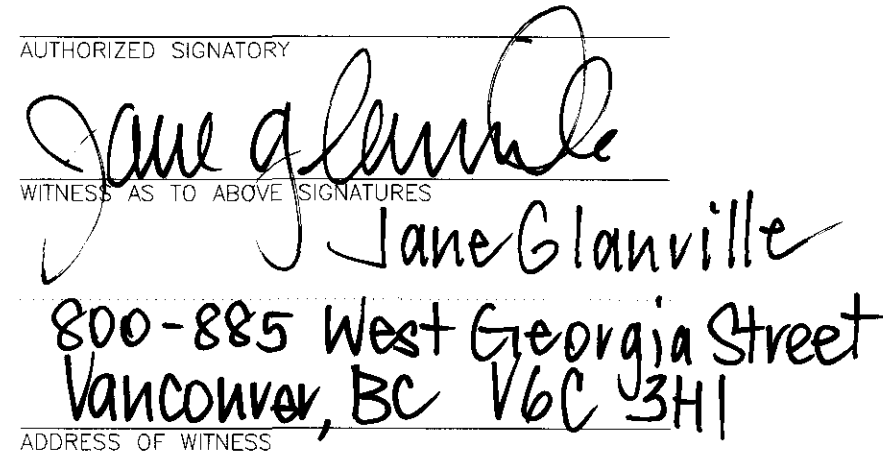 AUTHORIZED SIGNATORY
Jane Glanville
WITNESS AS TO ABOVE SIGNATURES
Jane Glanville
800-885 West Georgia Street
Vancouver, BC V6C 3H1
ADDRESS OF WITNESS